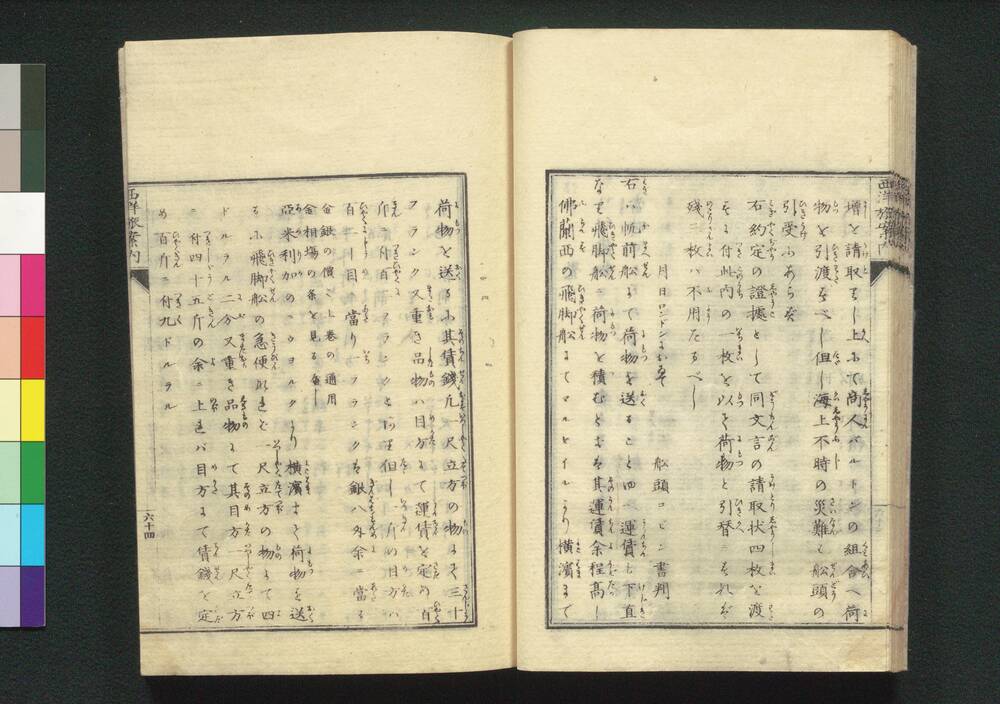 増を請取るし上にて商人バルトンの組合へ荷
物を引渡すべし但し海上不時の災難ハ船頭の
引受にあらず
右約定の證據として同文言の請取状四枚を渡
すに付此内の一枚を以て荷物と引替ニそれバ
残三枚ハ不用たるべし
月日ロンドンにおゐて 船頭ロビン書判
右ハ帆前船にて荷物を送ることと四ヘ運賃も下直
なれ𪜈飛脚船ニ荷物を積むときハ其運賃余程高し
佛蘭西の飛脚船にてマルセイルより横濱まで
荷物を送るに其賃銭凡一尺立方の物にて三十
フランク又重き品物ハ目方にて運賃を定め百
斤ニ付百一フランクとす但し一斤の目方ハ
百二十一目ニ當り一フランクハ銀八匁余ニ當る
金銀の價ハ上巻の通用
金相場の条を見るべし
亞米利加のニウヨルクより横濱まで荷物を送
るに飛脚船の急便なれバ一尺立方の物にて四
ドルラル二分又重き品物にて其目方一尺立方
ニ付四十五斤の余ニ上れバ目方にて賃銭を定
め百斤ニ付九ドルラル
西洋旅案内
六十四
西洋旅案内